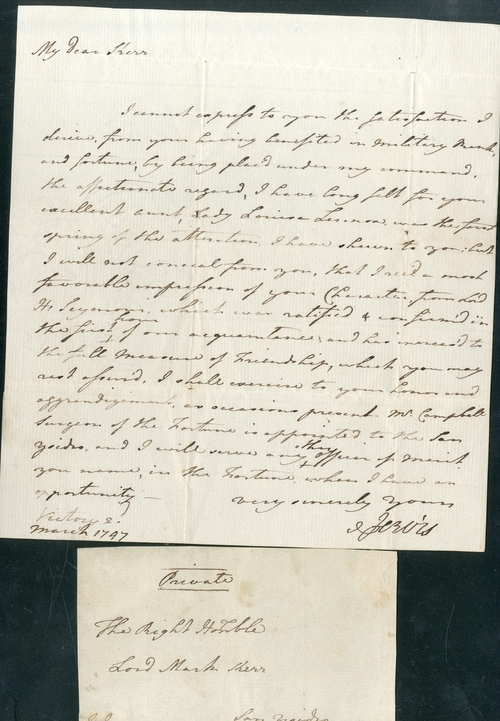 My Dear Kerr
I cannot express to you the satisfaction I
derive, from your having benefited in Military Rank,
and fortune, by being placed under my command,
the affectionate regard, I have long felt for your
excellent aunt Lady Louisa Lennox, was the first
spring of the attention, I have shewn to you; but
I will not conceal from you, that I rec'd a most
favorable impression of your Character from Lord
H: Seymour, which was ratified & confirm'd in
the first hour of our acquaintance; and has increased to
the full Measure of Friendship, which you may
rest assured, I shall exercise to your honor and
aggrandizement, as occasions present. Mr. Campbell
Surgeon of the Fortune is appointed to the San
Ysidro, and I will serve any other officer of merit
you name, in the Fortune, when I have an
opportunity —
very sincerely Yours
J Jervis
Victory
March 1797
Private
The Right Honble
Lord Mark Kerr
San Ysidro